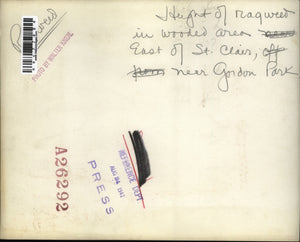 Ragweed
PHOTO BY WALTER KNEAL
Height of ragweed
in wooded area near
East of St. Clair, off
from near Gordon Park
A26292
REFERENCE DEPT
AUG 24 1947
PRESS